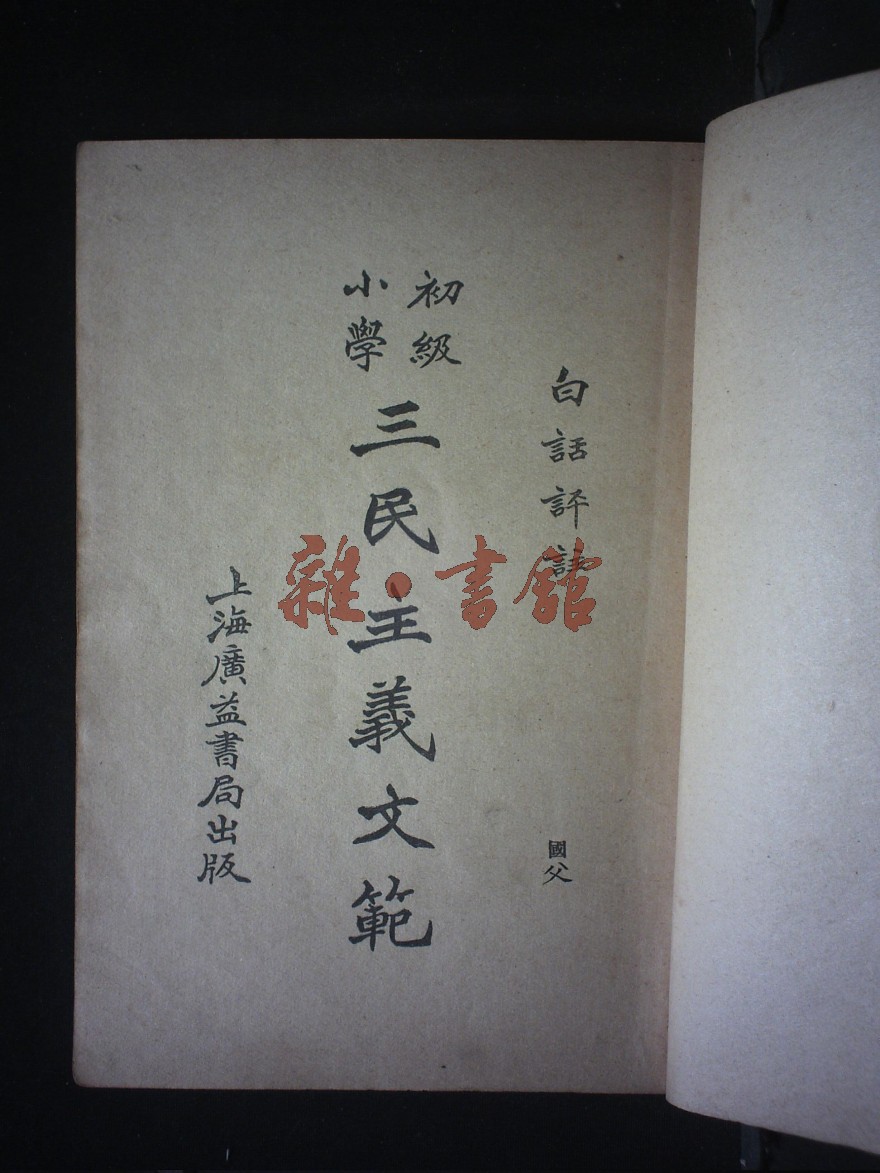 白話評註
國父
初級
小學
三民主義文範
上海廣益書局出版
雜·書館